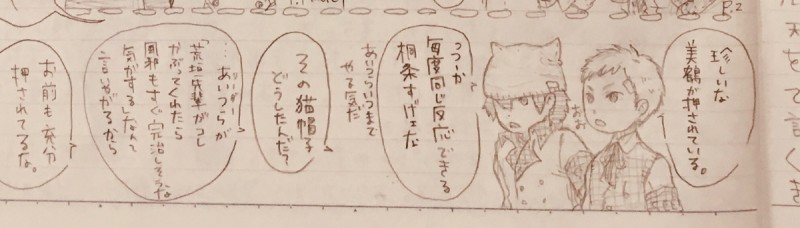 珍しいな
美鶴が押されている。
おお
っつーか
毎度同じ反応できる
桐条すげェだ
あいつらいつまで
やる気だ
その猫帽子
どうしたんだ?
…あいつらが
リーダー
「荒垣先輩がコレ
かぶってくれたら
風邪もすぐ完治しそうな
気がする」なんて
言いやがるから
お前も充分
押されてるな。